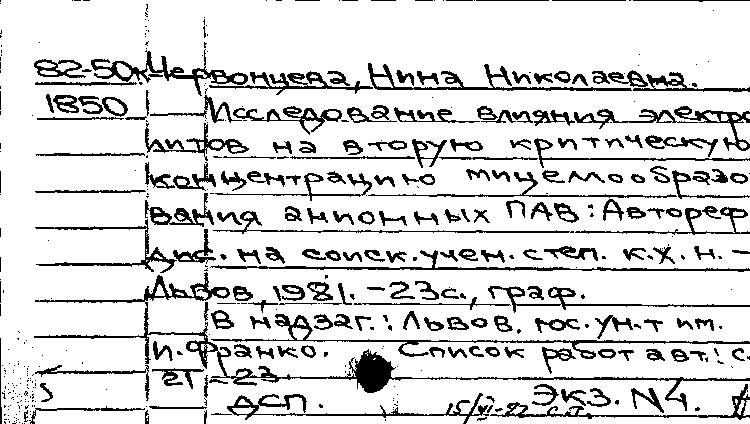 82-50к Червонцева, Нина Николаевна.
1850 Исследование влияния электро
литов на вторую критическую
концентрацию мицеллообразо
вания анионных ПАВ: Автореф
дис. на соиск. учен. степ. к.х.н. –
Львов, 1981. – 23с., граф.
В надзаг.: Львов. гос. ун-т им.
И. Франко. Список работ авт.: с.
21-23.
5 ДСП. 15/VI-82 с.т. Экз. N4.